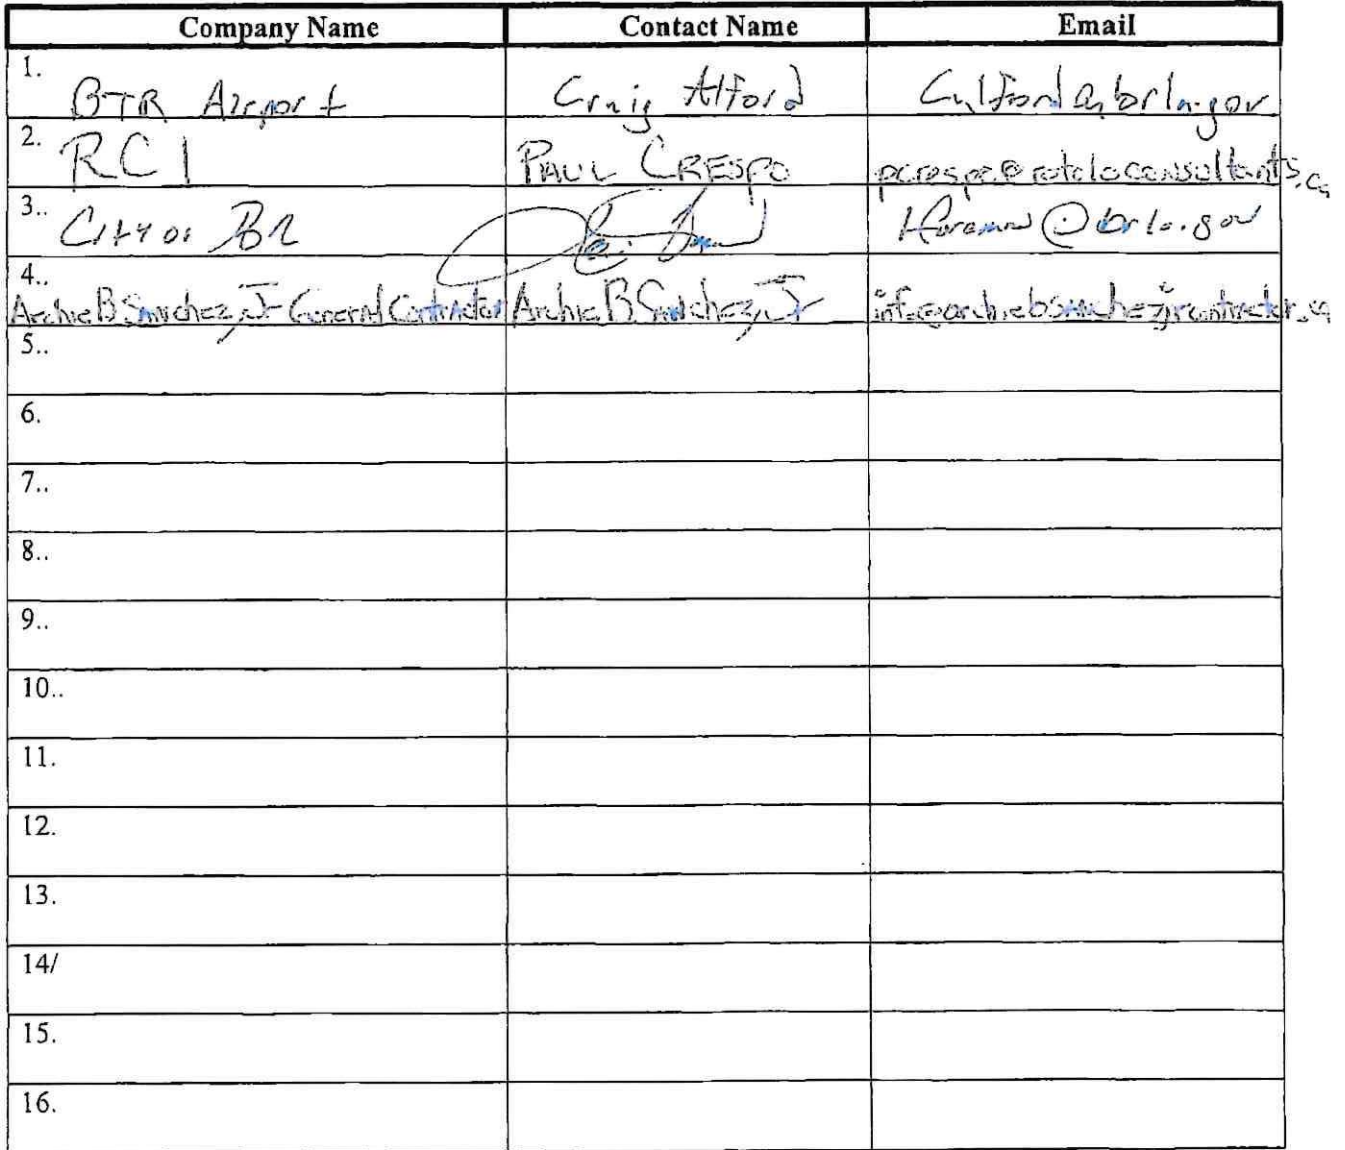 Company Name Contact Name Email
1. BTR Airport Craig Alford Calford@brla.gov
2. RCI PAUL CRESPO pcrespo@rotoloconsultants.co
3.. City of BR @brla.gov
4.. Archie B Sanchez, Jr General Contractor Archie B Sanchez, Jr info@archiebsanchezjrcontractor.co
5..
6.
7..
8..
9..
10..
11.
12.
13.
14/
15.
16.